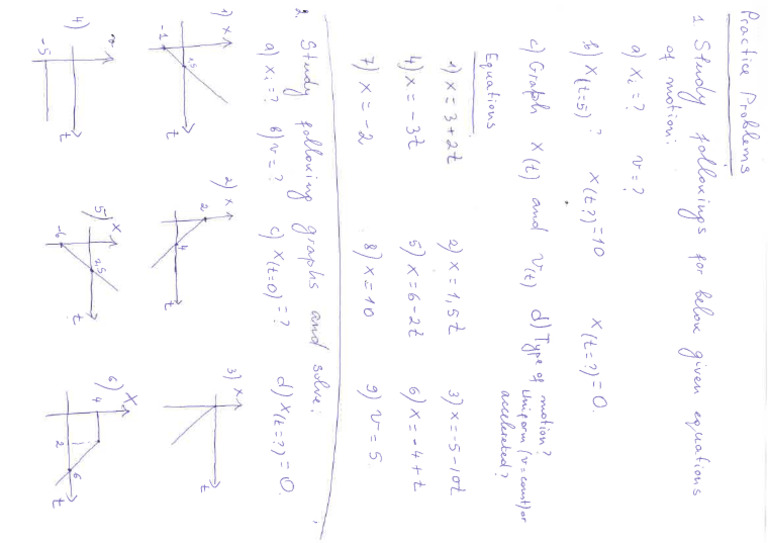 Practice Problems
1 Study followings for below given equations
of motion:
a) xi = ? v = ?
b) x(t=5) ? x(t?) = 10 x(t=?) = 0.
c) Graph x(t) and v(t) d) Type of motion?
Uniform (v=const) or
accelereted?
Equations
1) x = 3 + 2t 2) x = 1,5t 3) x = -5 - 10t
4) x = -3t 5) x = 6 - 2t 6) x = -4 + t
7) x = -2 8) x = 10 9) v = 5
2. Study following graphs and solve:
a) xi = ? b) v = ? c) x(t=0) = ? d) x(t=?) = 0.
1) x 2) x 3) x
2
1,5 4
-1
t t t
4) 5) x 6) x
4
2,5 2 6
-5 -6
t t t